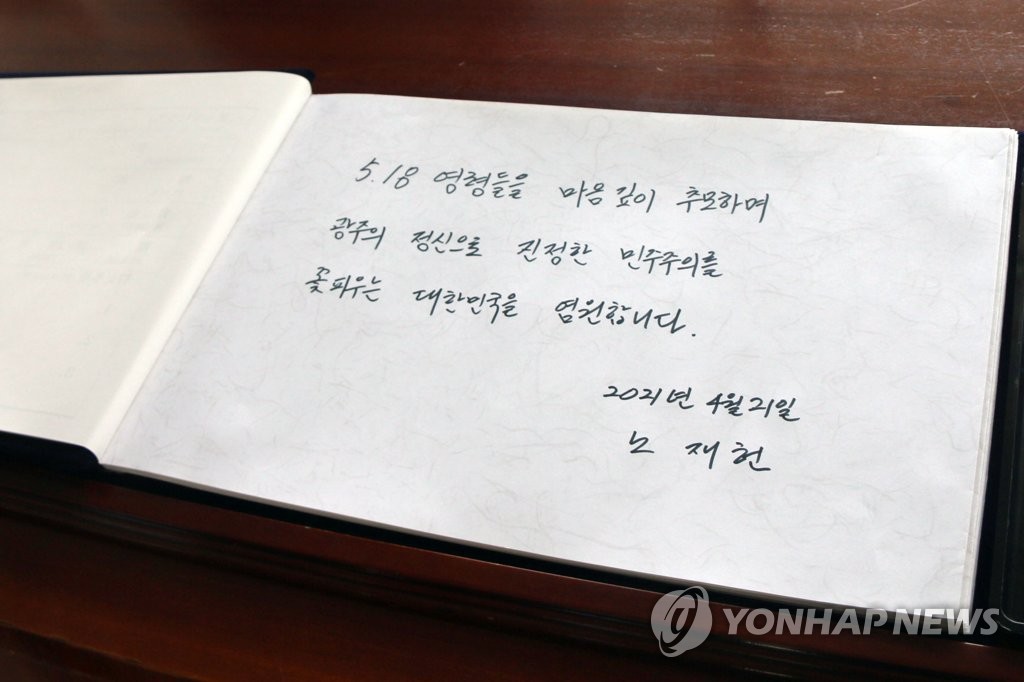 5.18 영령들을 마음깊이 추모하며
광주의 정신으로 진정한 민주주의를
꽃피우는 대한민국을 염원합니다.
2021년 4월 21일
노 재 헌
YONHAP NEWS